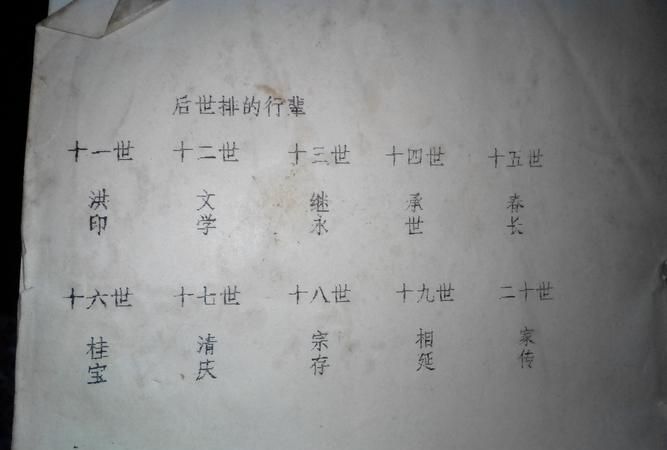 后世排的行辈
十一世 十二世 十三世 十四世 十五世
洪 文 继 承 春
印 学 永 世 长
十六世 十七世 十八世 十九世 二十世
桂 清 宗 相 家
宝 庆 存 延 传